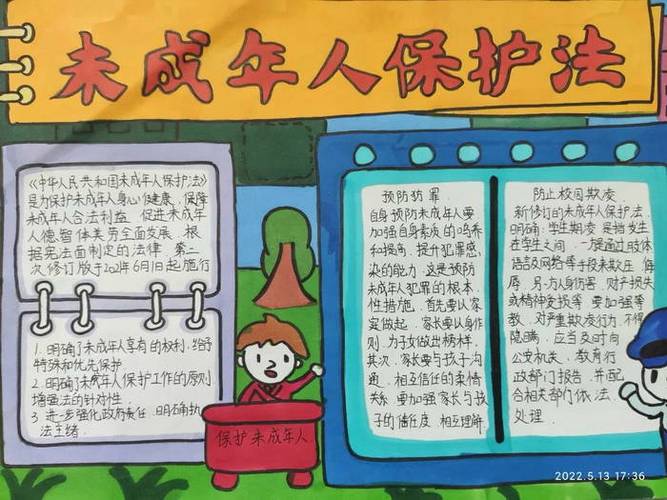 未成年人保护法
《中华人民共和国未成年人保护法》
是为保护未成年人身心健康,保障
未成年人合法利益 促进未成年
人德智体美劳全面发展,根
据宪法面制定的法律,第二
次修订版于2021年6月1日起施行
1.明确了未成年人享有的权利,给予
特殊和优先保护
2.明确了未成年人保护工作的原则
增强法的针对性
3.进步强化政府责任.明确执
法主绪
保护未成年人
预防犯罪
自身预防未成年人要
加强自身素质的
和提高,提升犯罪感
染的能力,这是预防
未成年人犯罪的根本
性措施,首先要从家
定做起,家长要以身作
则,为子女做出榜样,
其次,家长要与孩子沟
通,相互信任的柔情
关系,要加强家长与孩
子的信任度,相互理解
防止校园欺凌
新修订的未成年人保护法
明确:学生期凌是指发生
在学生之间,一旋通过肢体
语言及网络等手段未欺压、侮
辱,另一方人身伤害,财产损失
或精神受损等,要加强等
教,对严重欺凌行为,不得
隐瞒,应当及时向
公安机关、教育行
政部门报告,并配
合相关部门依法
处理.
2022.5.13 17:36